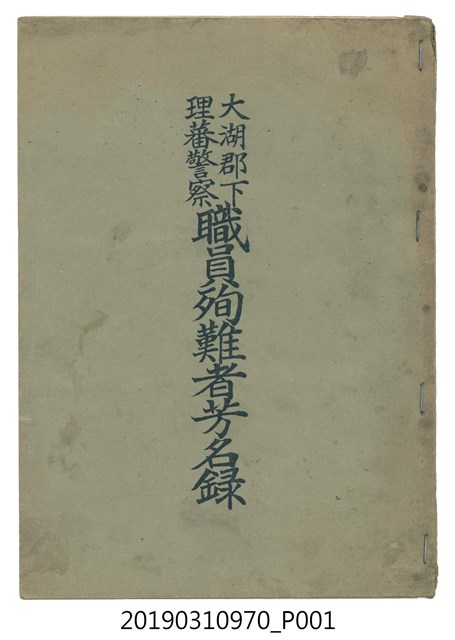 大湖郡下
理蕃警察
職員殉難者芳名録
20190310970_P001